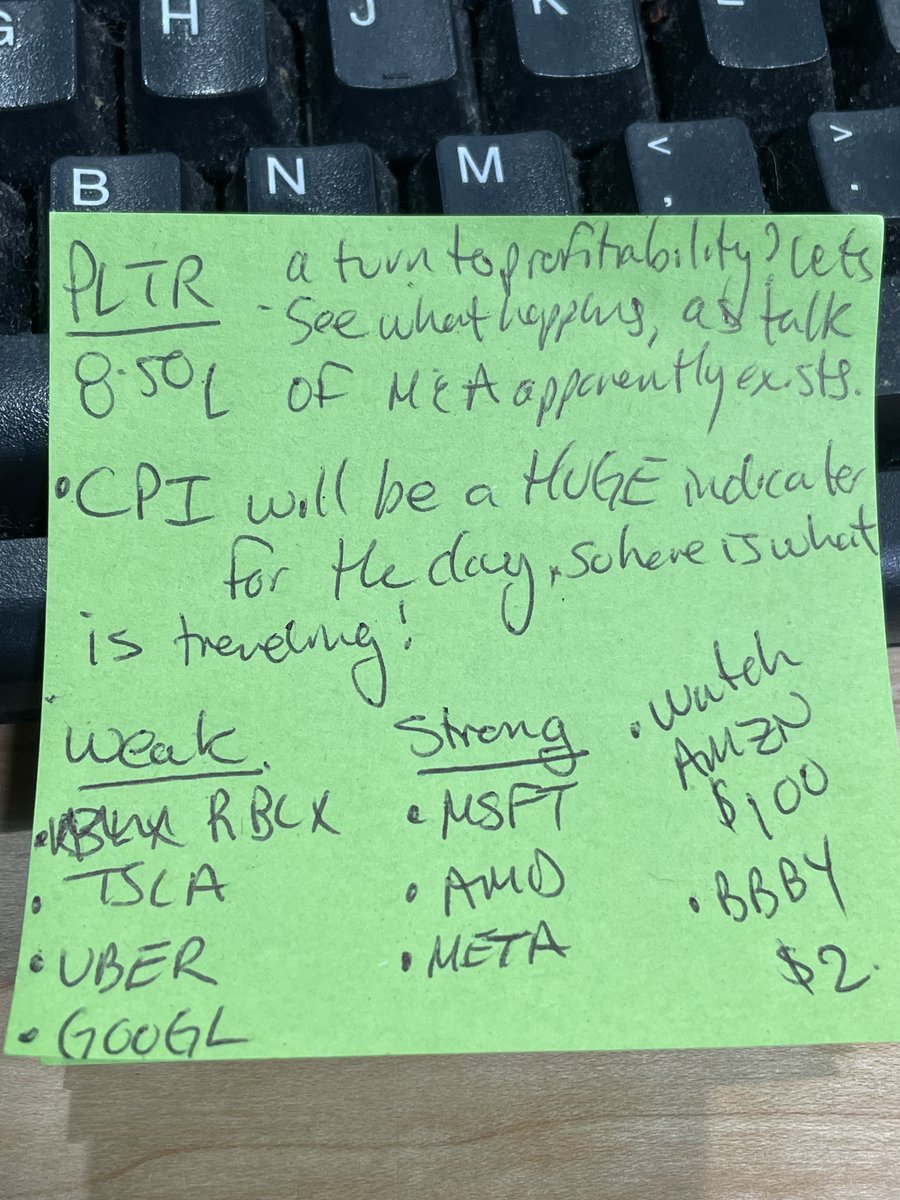 G H J K L
B N M < , > .
PLTR a turn to profitiability? lets
8.50L - See what happens, as talk
of M&A apparently exists.
• CPI will be a HUGE indicater
for the day, so here is what
is trending!
Weak. Strong • Watch
AMZN
$100
• RBLX • MSFT
• TSLA • AMD • BBBY
• UBER • META $2.
• GOOGL